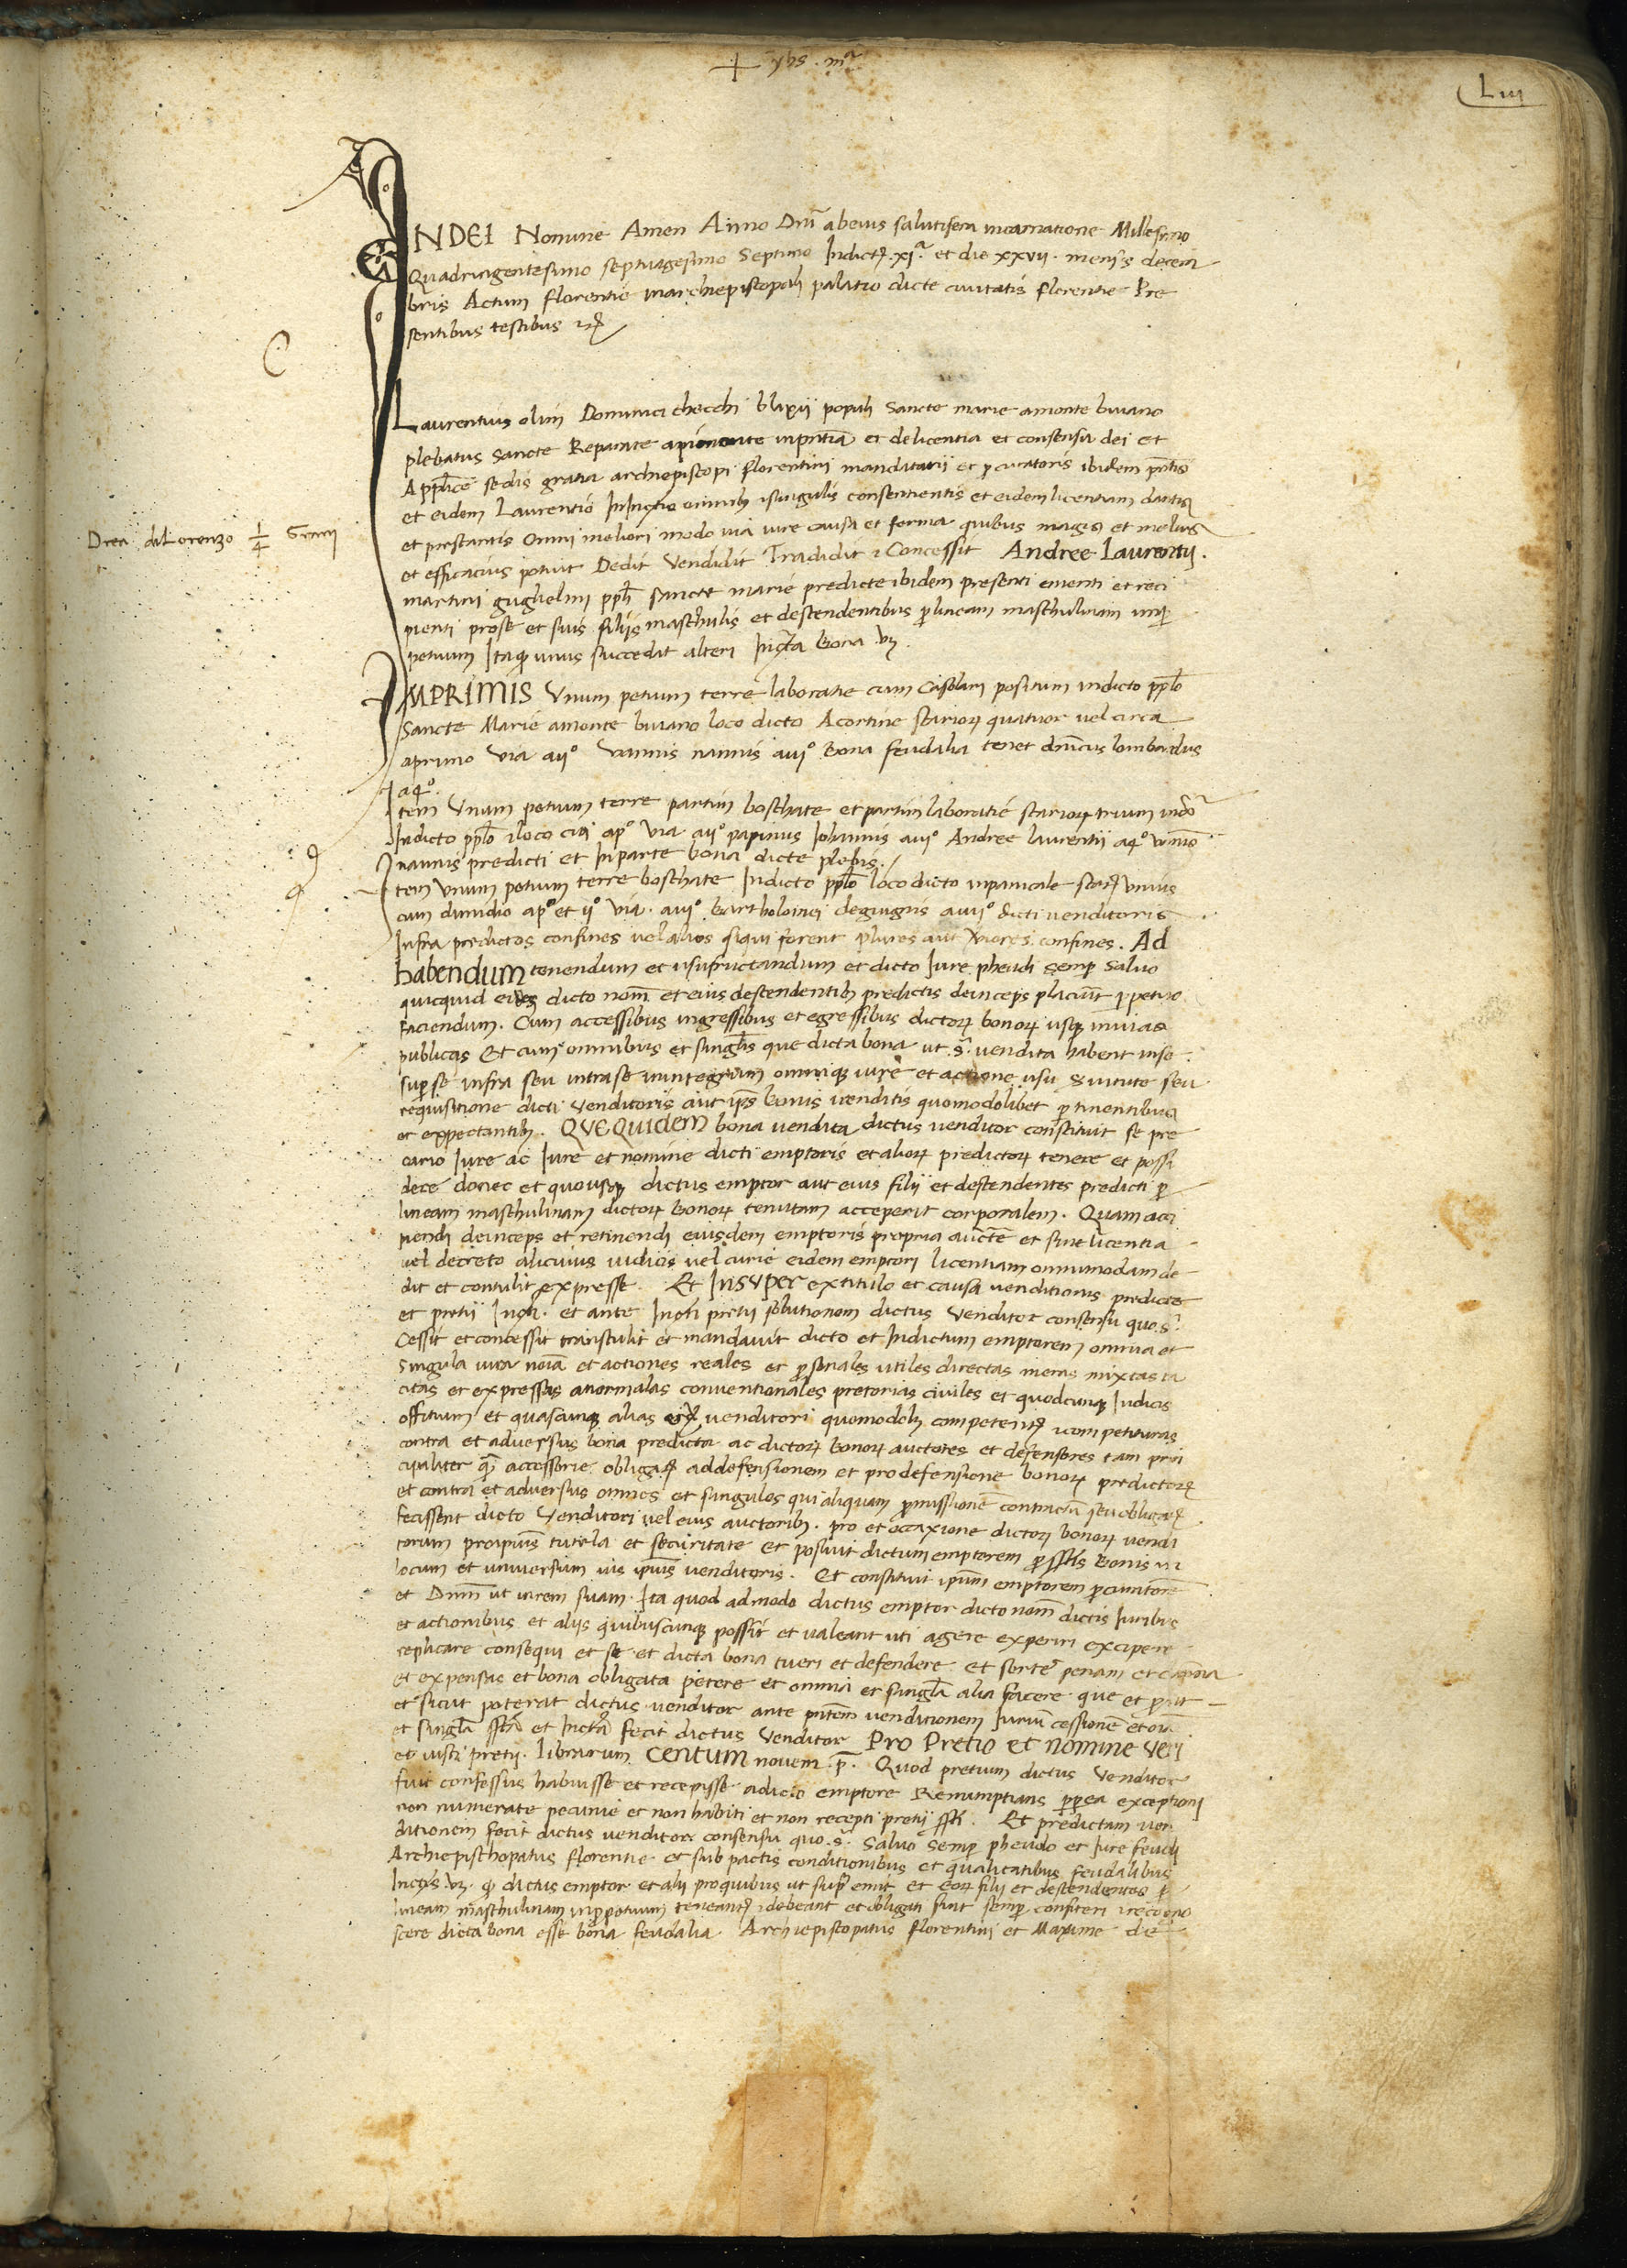 + yhs . mª
Liii
INDEI Nomine Amen Anno Dñi abeius salutifera incarnatione Millesimo
Quadringentesimo septuagesimo Septimo Indict. xiª. et die xxvii. mensis decem
bris Actum florentie inarchiepiscopali palatio dicte civitatis florentie Pre
sentibus testibus
Laurentius olim Dominici checchi blaxii populi Sancte marie amonte buiano
plebatus Sancte Reparate et delicentia et consensu dei et
sedis gratia archiepiscopi florentini mandatarii et procuratoris ibidem
et eidem Laurentio omnibus singulis consentientis et eidem licentiam dantis
Drea di Lorenzo 1/4 Grani
et prestantis omni meliori modo via iure causa et forma quibus magis et melius
et efficacius potuit Dedit Vendidit Tradidit Concessit Andree Laurentij.
martini guglielmi ppli sancte marie predicte ibidem presenti ementi et reci
pienti prose et suis filijs maschulis et descendentibus plineam maschulinam inp
petuum Itaq unus succedat alteri bona vz.
IMPRIMIS Unum petium terre laboratie cum Casolari positum indicto pplo
Sancte Marie amonte buiano loco dicto Acortine starior quatuor vel circa
aprimo via aijº Vannis nannis aiijº Bona feudalia tenet dñicus lombardus
a4º.
Item Unum petium terre partim boschate et partim laboratie starior trium
Indicto pplo loco apº via aijº papinus Iohannis aiijº Andree laurentii a4º
nannis predicti et Inparte bona dicte plebis.
Item Unum petium terre boschate Indicto pplo loco dicto inpanicale star unius
cum dimidio apº et ijº via. aiijº bartholomei aiiijº dicti venditoris
Infra predictos confines vel alios siqui forent plures aut veriores confines. Ad
habendum tenendum et usufructandum et dicto Iure pheudi semp salvo
quicquid dicto nom et eius descendentib predictis deinceps placuit ppetuo
Faciendum. Cum accessibus ingressibus et egressibus dictor bonor usq invias
publicas Et cum omnibus et singulis que dicta bona ut sª. vendita habent inse
supse infra seu intrase inintegrum omniq iure et actione usu seu
requisitione dicti venditoris aut ips bonis venditis quomodolibet ptinentibus
et expectantib. QVEQUIDEM bona vendita dictus venditor constituit se pre
cario Iure ac Iure et nomine dicti emptoris et alior predictor tenere et possi
dere donec et quousq dictus emptor aut eius filii et descendentes predicti p
lineam maschulinam dictor bonor tenutam acceperit corporalem. Quam acci
piendi deinceps et retinendi eiusdem emptoris propria aucte et sine licentia
vel decreto alicuius iudicis vel curie eidem emptori licentiam omnimodam de
dit et contulit expresse. Et INSUPER extitulo et causa venditionis predicte
et pretii. et ante pretii solutionem dictus Venditor consensu quo. sª.
Cessit et concessit transtulit et mandavit dicto et Indictum emptorem omnia et
singula iura noia et actiones reales et psonales utiles directas meras mixtas ta
citas et expressas anormalas conventionales pretorias civiles et quodcunq Iudicis
offitium et quascunq alias venditori quomodolz competent competituras
contra et adversus bona predicta ac dictor bonor auctores et defensores tam prin
cipaliter qm accessorie obligat addefensionem et prodefensione bonor predictor
et contra et adversus omnes et singulos qui aliquam pmissione contractu seu obligat
fecissent dicto Venditori vel eius auctorib. pro et occaxione dictor bonor vendi
torum tutela et securitate et posuit dictum emptorem p bonis in
locum et universum ius ipius venditoris. Et constituit ipum emptorem pcuratorē
et Dñm ut inrem suam. Ita quod admodo dictus emptor dicto nom dictis Iuribus
et actionibus et alijs quibuscunq possit et valeant uti agere experiri excipere
replicare consequi et se et dicta bona tueri et defendere et sorte penam et dapna
et expensas et bona obligata petere et omnia et singla alia facere que et put
et sicut poterat dictus venditor ante pntem venditionem Iurium cessione et oia
et singla et fecit dictus Venditor PRO PRETIO ET NOMINE VERI
et iusti pretij. librarum CENTUM novem . p. Quod pretium dictus Venditor
fuit confessus habuisse et recepisse adicto emptore Renumptians pp ea exceptioni
non numerate pecunie et non habiti et non recepti pretij. Et predictam ven
ditionem fecit dictus venditor consensu quo. sª. Salvo semp pheudo et Iure feudi
Archiepischopatus florentie et sub pactis conditionibus et qualitatibus feudalibus
vz. q dictus emptor et alii proquibus ut supª emit et eor filii et descendentes p
lineam maschulinam inppetuum teneant debeant et obligati sint semp confiteri recogno
scere dicta bona esse bona feudalia Archiepiscopatus florentini et Maxime de